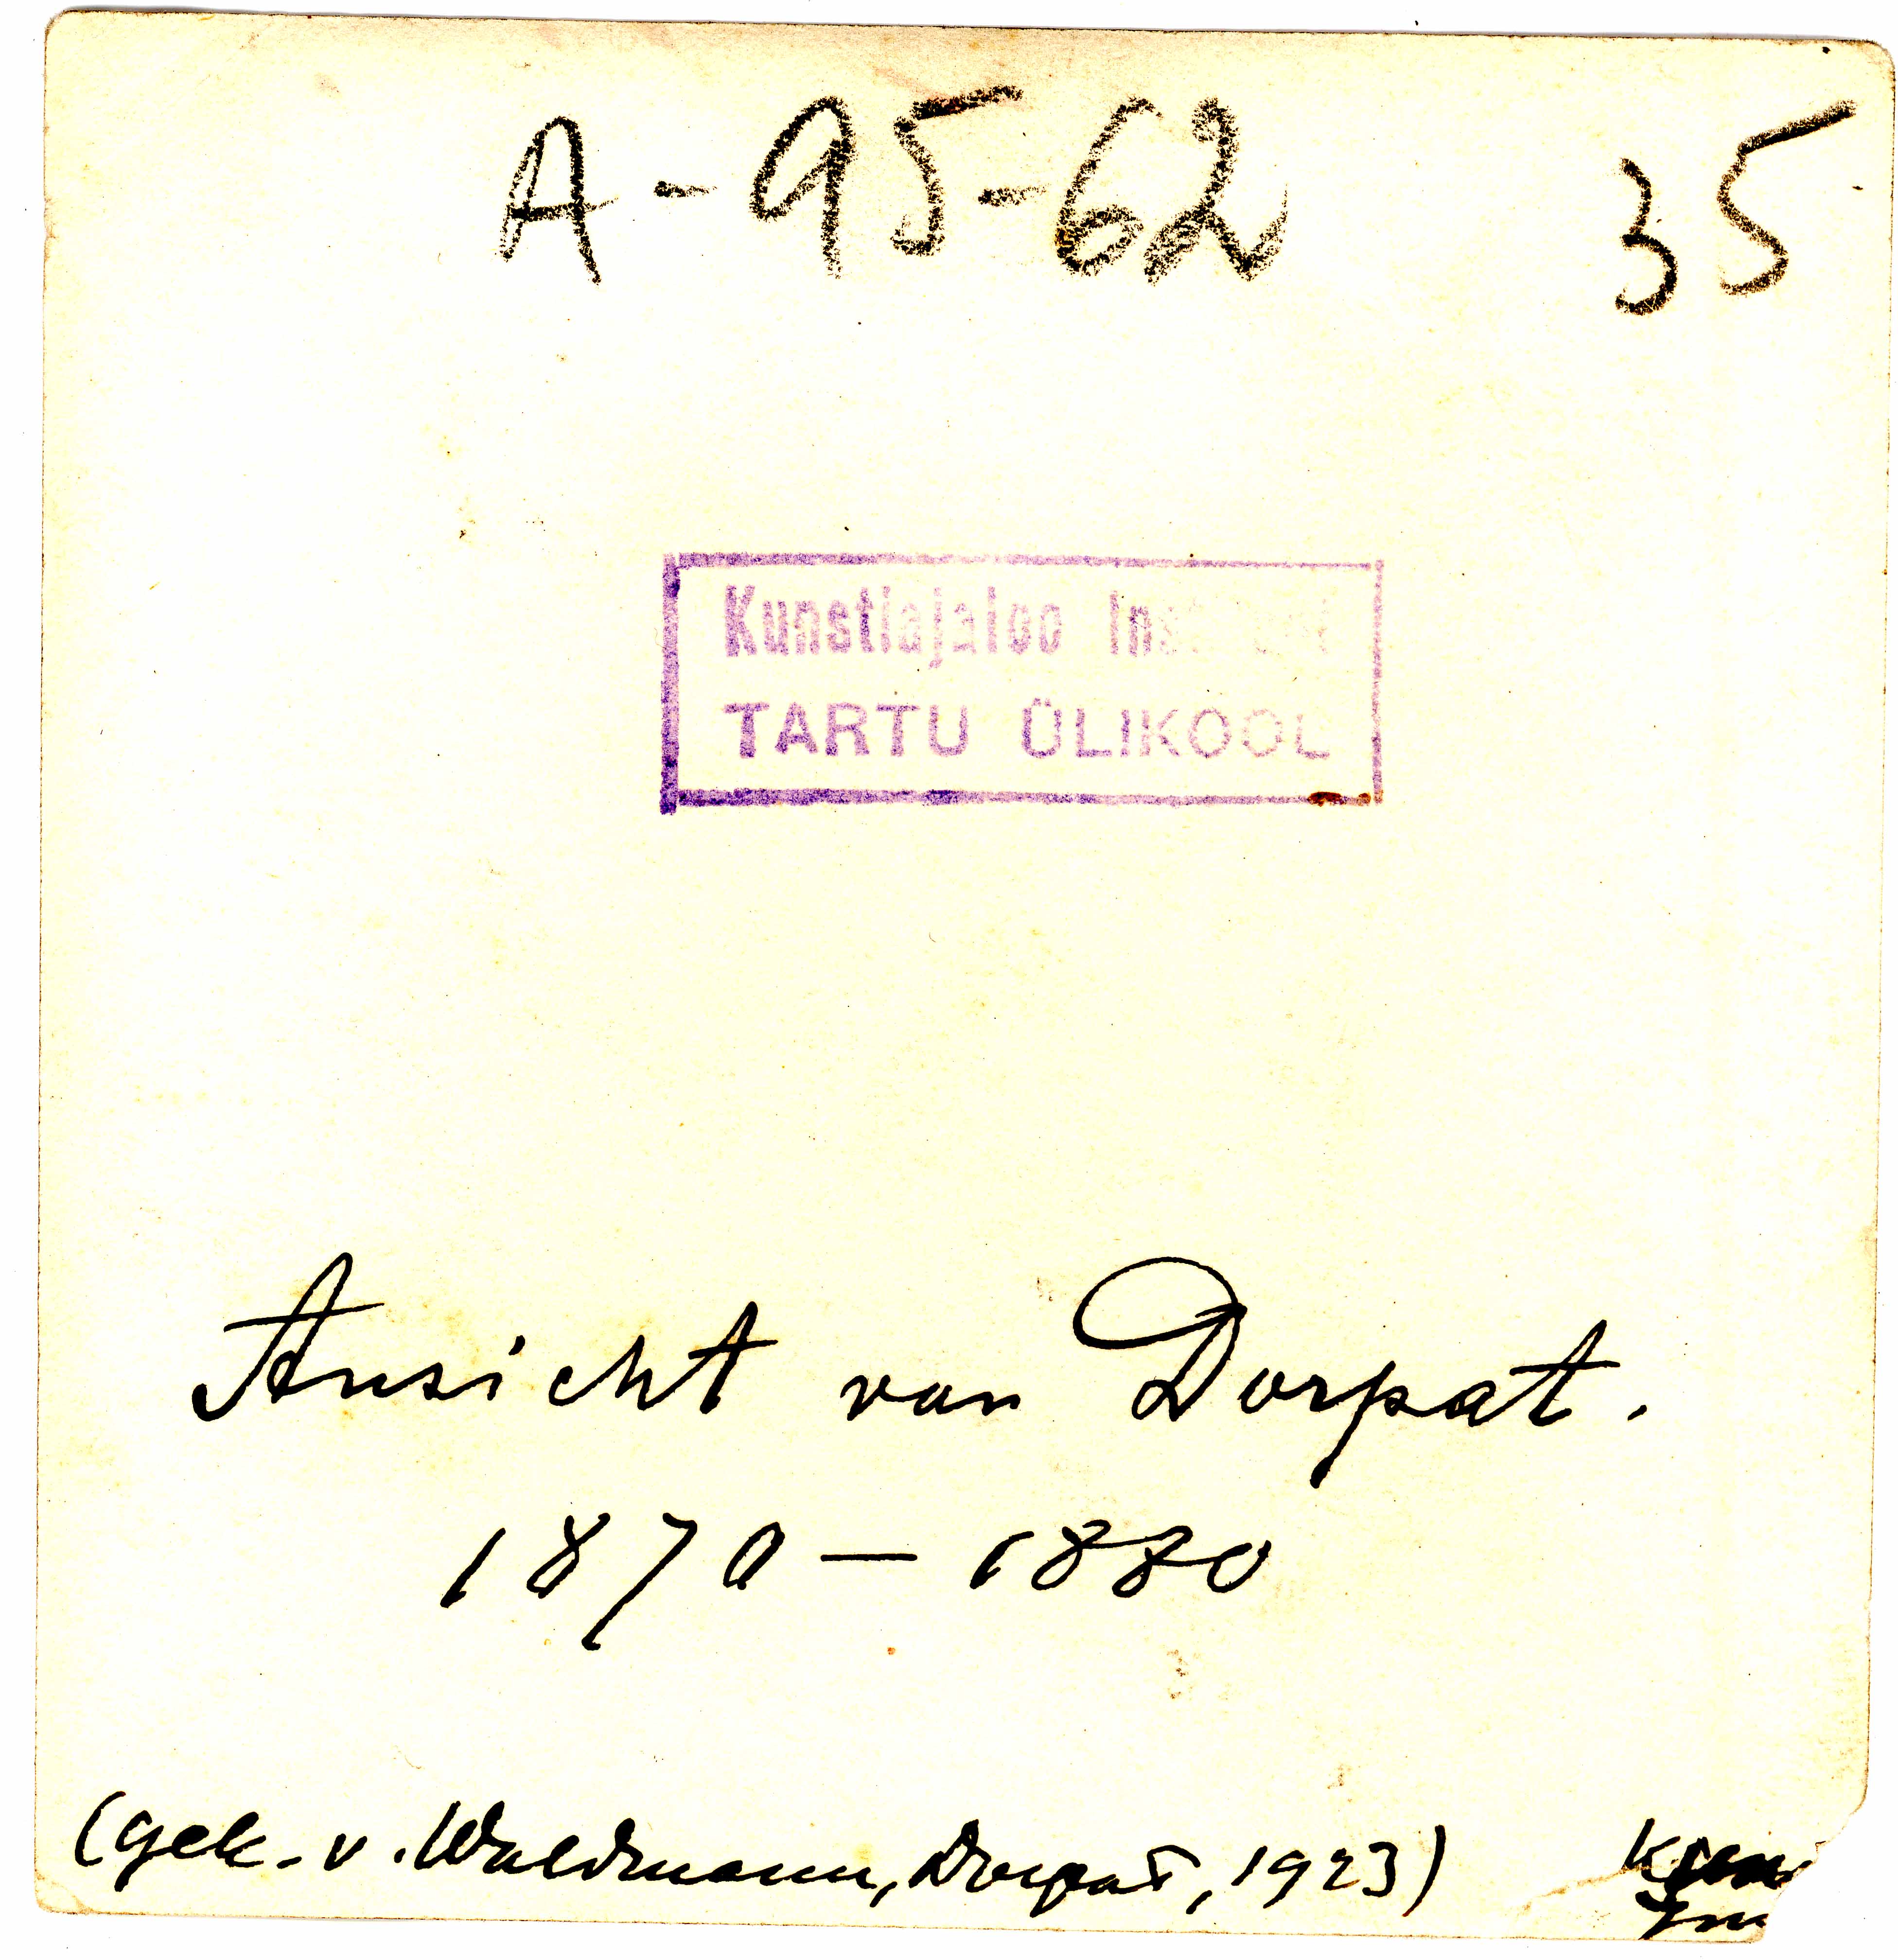 A-95-62 35
Kunstiajaloo
TARTU ÜLIKOOL
Ansicht von Dorpat.
1870-1880
(gek. v. Waldmann, Dorpat, 1923)